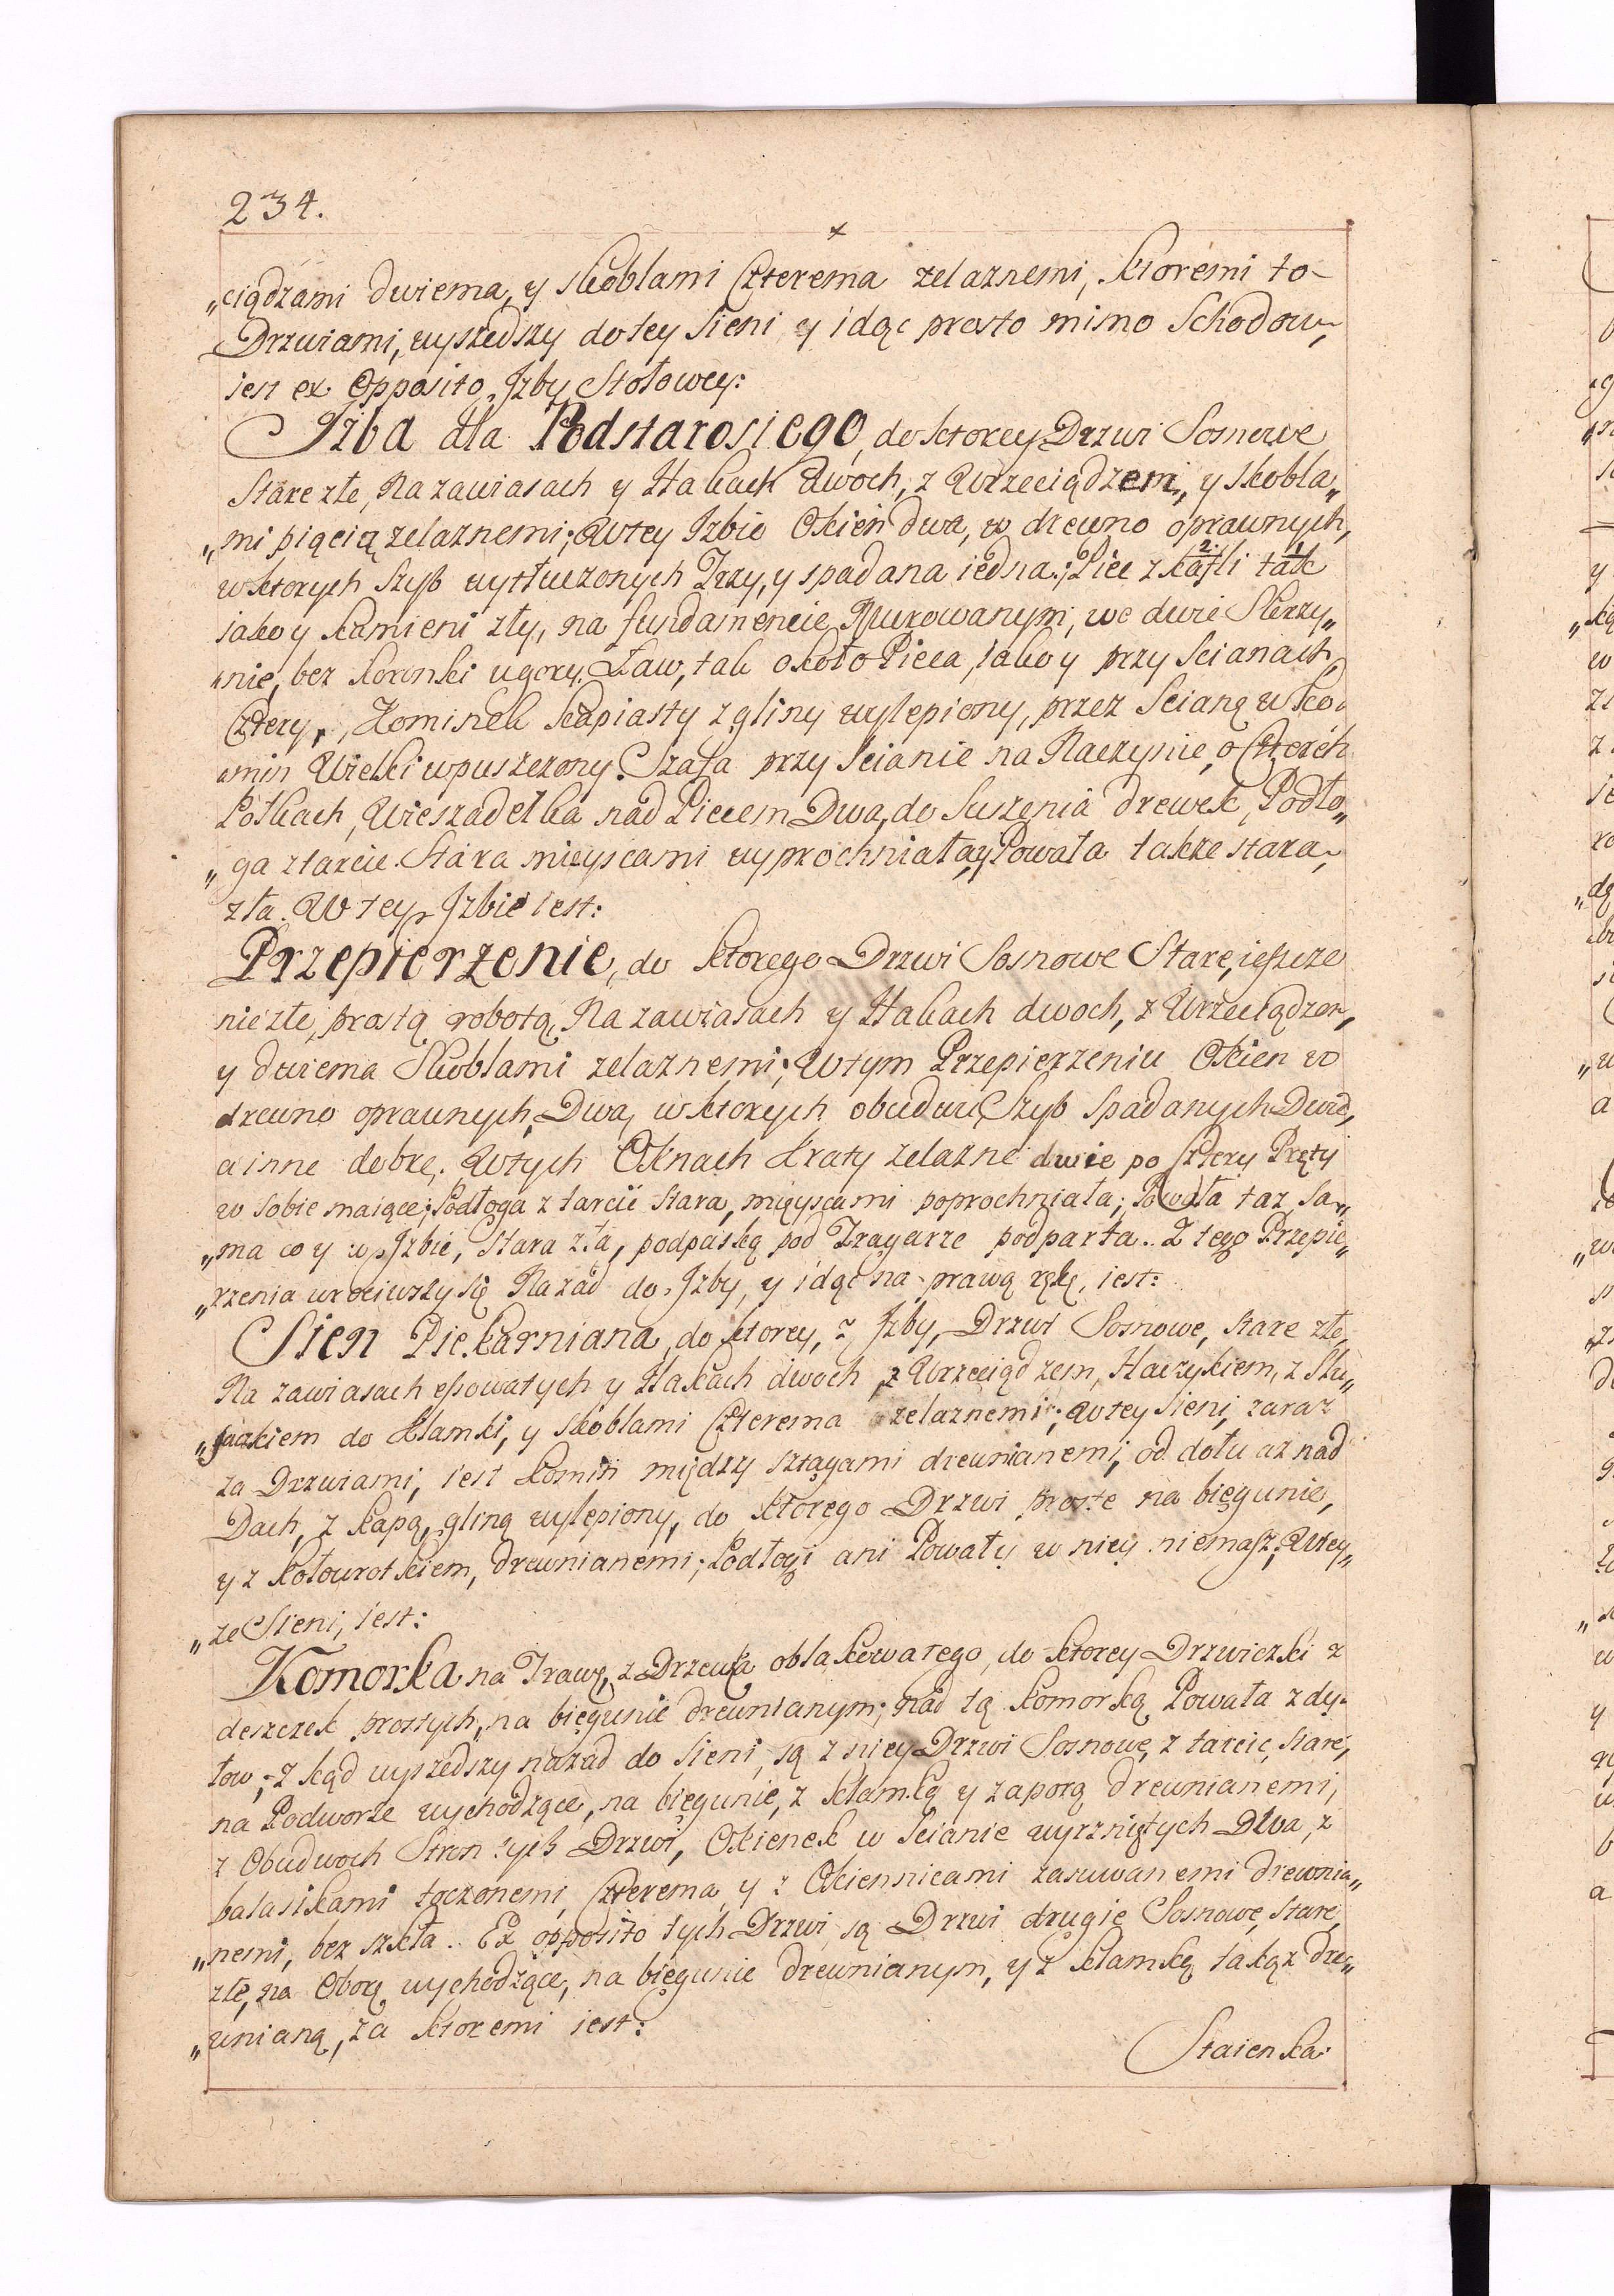 234.
„ciądzami dwiema, y skoblami czterema zelaznemi, ktoremi to
Drzwiami, wyszedszy do tey Sieni y idąc prosto mimo Schodow,
iest ex Opposito Izby Stołowey:
Izba dla Podstarosiego, do ktorey Drzwi Sosnowe
Stare złe, Na zawiasach y Hakach dwoch, z Wrzeciądzem, y skobla„
„mi pięcią zelaznemi; W tey Izbie Okien dwa, w drewno oprawnych,
w ktorych Szyb wytłuczonych Trzy, y spadana iedna; Piec z kafli tak
iako y kamieni zły, na fundamencie Murowanym, we dwie Skrzy„
„nie, bez koronki u gory. Ław, tak około Pieca, iako y przy Scianach,
Cztery, Kominek kapiasty z gliny wylepiony, przez Scianę w Ko„
„min Wielki wpuszczony. Szafa przy Scianie na Naczynie, o Czterech
Połkach, Wieszadełka nad Piecem Dwa, do Suszenia drewek, Podło„
„ga z tarcic Stara mieyscami wyprochniała, y Powała takze stara
zła. W tey Izbie iest:
Przepierzenie, do ktorego Drzwi Sosnowe Stare, ieszcze
nie złe, prostą robotą, Na zawiasach y Hakach dwoch, z Wrzeciądzem,
y dwiema Skoblami zelaznemi; W tym Przepierzeniu Okien w
drewno oprawnych, Dwa, w ktorych obudwu, Szyb Spadanych Dwie,
a inne dobre. W tych Oknach Kraty zelazne dwie po Cztery Pręty
w sobie maiące; Podłoga z tarcic stara, mieyscami poprochniała; Powała taz sa„
„ma co y w Izbie, stara zła, podpaską pod Tragarze podparta. Z tego Przepie„
„rzenia wrociwszy się Nazad do Izby, y idąc na prawą rękę, iest:
Sien Piekarniana, do ktorey, z Izby, Drzwi Sosnowe, stare złe,
Na zawiasach esowatych y Hakach dwoch z Wrzeciądzem, Haczykiem, z Sku„
do Klamki, y skoblami Czterema zelaznemi; W tey Sieni, zaraz
za Drzwiami, iest komin między sztagami drewnianemi, od dołu az nad
Dach, z kapą, gliną wylepiony, do ktorego Drzwi proste na biegunie,
y z kołowrotkiem, drewnianemi; Podłogi ani Powały w niey niemasz; W tey„
„ze Sieni, iest:
Komorka na Trawę, z Drzewka obłakowatego, do ktorey Drzwiczki z
deszczek prostych, na biegunie drewnianym; Nad tą komorką Powała z dy„
low; z kąd wyszedszy nazad do Sieni, są z niey Drzwi Sosnowe, z tarcic, stare,
na Podworze wychodzące, na biegunie, z klamką y zaporą drewnianemi,
z Obudwoch Stron tych Drzwi, Okienek w Scianie wyrzniętych Dwa, z
balasikami toczonemi, Czterema, y z Okiennicami zasuwanemi drewnia„
„nemi, bez szkła. Ex opposito tych Drzwi, są Drzwi drugie Sosnowe, stare,
złe, na Oborę wychodzące, na biegunie drewnianym, y z klamką takąz dre„
„wnianą, za ktoremi iest:
Staienka.